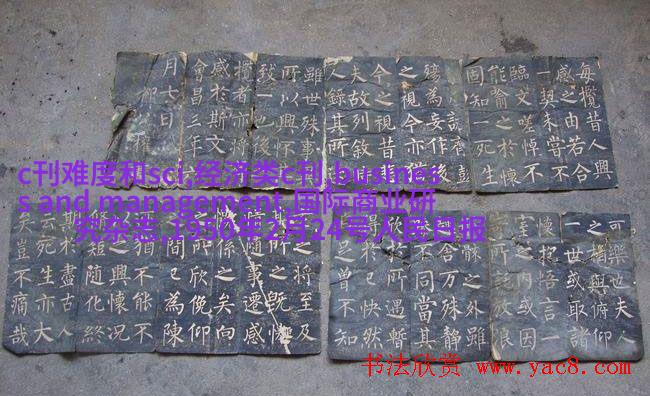 每攬昔人興
感之由若合
一契未嘗不
臨文嗟悼不
能喻之於懷
固知一死生
誕齊彭
殤為妄作後
之視今亦
今之視昔悲
夫故列敘
人錄其所
雖世殊事
所以興懷
致一也後
攬者亦將
感於斯文
會昌三年
月七日
c刊难度和sci,经济类c刊,busines
s and management,国际商业研
究杂志,1950年2月24号人民日报
可樂也夫人
之相與俯仰
一世或取諸
懷抱悟言一
室之內或因
所託放浪
之外雖
舍萬殊靜
不同當其
欣於所遇暫
得於己快然
足曾不知
之將至及
所之既
情隨事遷感
係之矣向
之所欣俛仰
間已為陳
猶不能不
以之興懷況
修短隨化終
期於盡古人
云死生亦大
矣豈不痛哉
书法欣赏 www.yac8.com